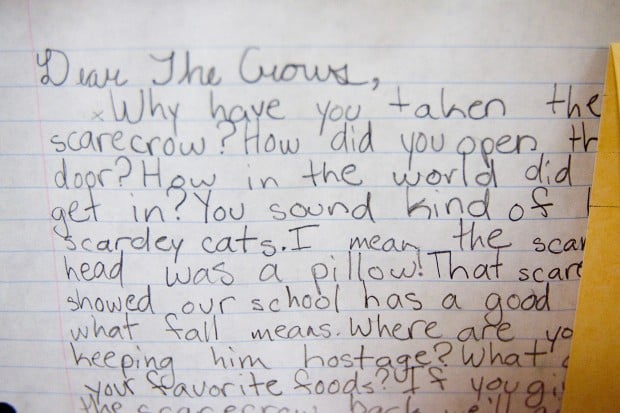 Dear The Crows,
Why have you taken the
scarecrow? How did you open
door? How in the world did
get in? You sound kind of
scardey cats. I mean the
head was a pillow! That
showed our school has a good
what fall means. Where are
keeping him hostage? What
your favorite foods? If you
the scarecrow back